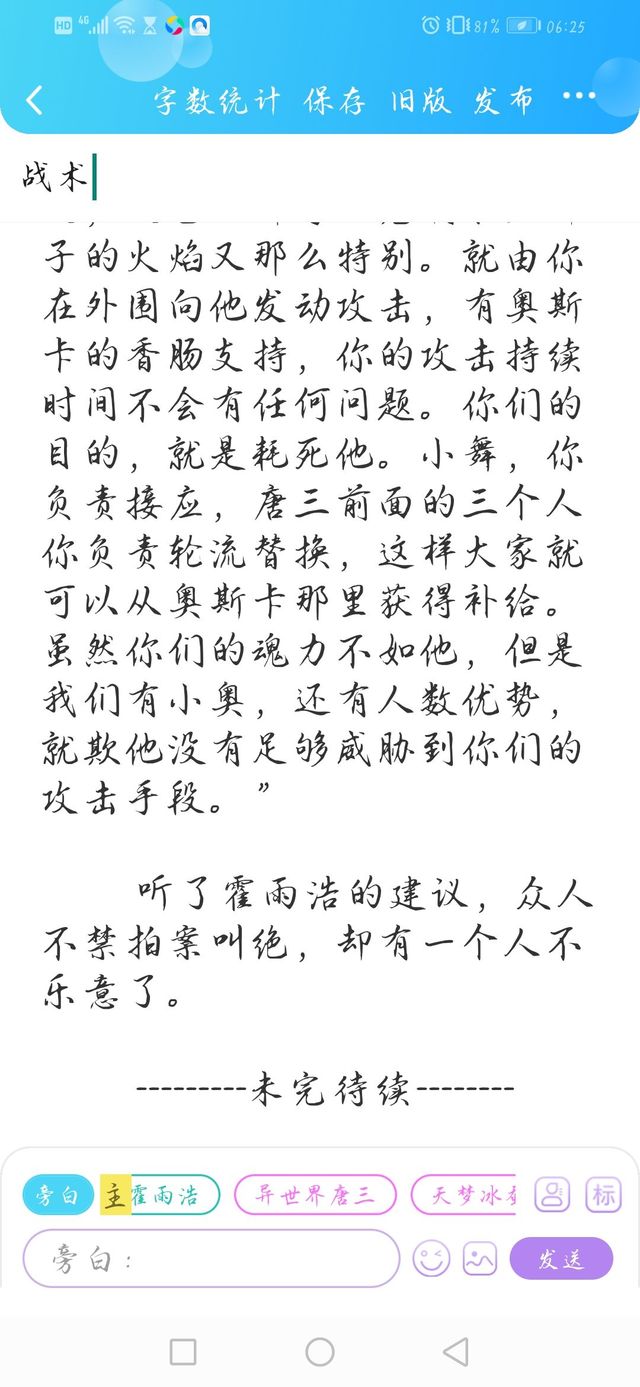 HD 4G 81% 06:25
字数统计 保存 旧版 发布 •••
战术
子的火焰又那么特别。就由你
在外围向他发动攻击，有奥斯
卡的香肠支持，你的攻击持续
时间不会有任何问题。你们的
目的，就是耗死他。小舞，你
负责接应，唐三前面的三个人
你负责轮流替换，这样大家就
可以从奥斯卡那里获得补给。
虽然你们的魂力不如他，但是
我们有小奥，还有人数优势，
就欺他没有足够威胁到你们的
攻击手段。”
听了霍雨浩的建议，众人
不禁拍案叫绝，却有一个人不
乐意了。
---------未完待续--------
旁白 主 霍雨浩 异世界唐三 天梦冰 标
旁白： 发送